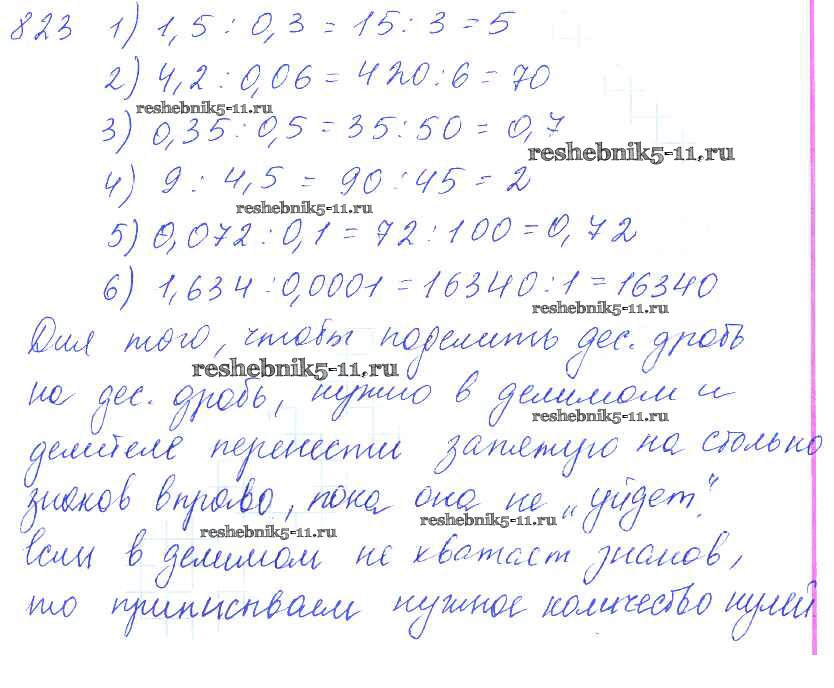 823 1) 1,5 : 0,3 = 15 : 3 = 5
2) 4,2 : 0,06 = 420 : 6 = 70
reshebnik5-11.ru
3) 0,35 : 0,5 = 35 : 50 = 0,7
reshebnik5-11.ru
4) 9 : 4,5 = 90 : 45 = 2
reshebnik5-11.ru
5) 0,072 : 0,1 = 72 : 100 = 0,72
6) 1,634 : 0,0001 = 16340 : 1 = 16340
reshebnik5-11.ru
Для того, чтобы поделить дес. дробь
reshebnik5-11.ru
на дес. дробь, нужно в делимом и
reshebnik5-11.ru
делителе перенести запятую на столько
знаков вправо, пока она не „уйдет".
reshebnik5-11.ru reshebnik5-11.ru
Если в делимом не хватает знаков,
то приписываем нужное количество нулей